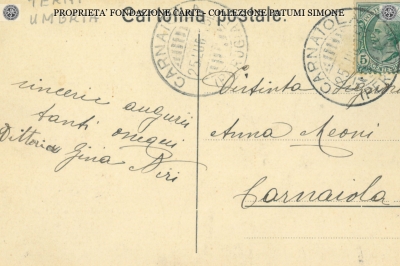 TERNI
UMBRIA
PROPRIETA' FONDAZIONE CARIT - COLLEZIONE PATUMI SIMONE
Cartolina postale.
CARNAIOLA
CARNAIOLA
5
sinceri auguri
tanti
Gina Neri
Distinta
Anna Meoni
Carnaiola